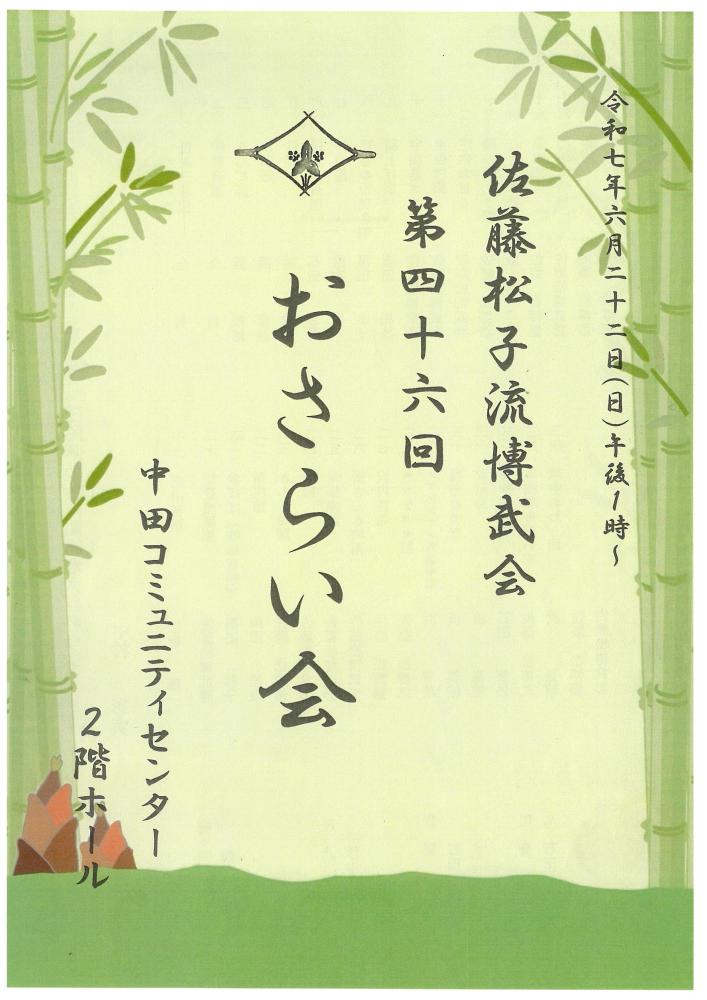 令和七年六月二十二日(日)午後1時~
佐藤松子流博武会
第四十六回
おさらい会
中田コミュニティセンター
2階ホール